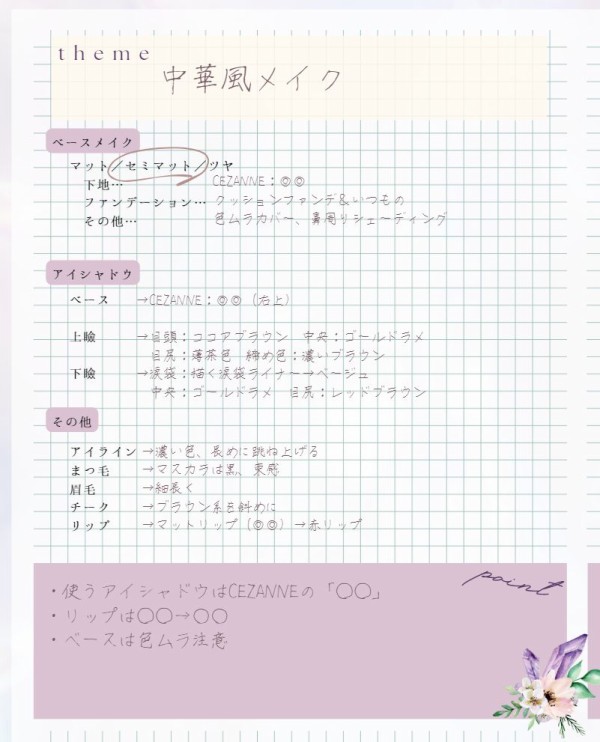 theme
中華風メイク
ベースメイク
マット／セミマット／ツヤ
下地… CEZANNE：◎◎
ファンデーション… クッションファンデ＆いつもの
その他… 色ムラカバー、鼻周りシェーディング
アイシャドウ
ベース →CEZANNE：◎◎（右上）
上瞼 →目頭：ココアブラウン 中央：ゴールドラメ
目尻：薄茶色 締め色：濃いブラウン
下瞼 →涙袋：描く涙袋ライナー→ベージュ
中央：ゴールドラメ 目尻：レッドブラウン
その他
アイライン →濃い色、長めに跳ね上げる
まつ毛 →マスカラは黒、束感
眉毛 →細長く
チーク →ブラウン系を斜めに
リップ →マットリップ（◎◎）→赤リップ
point
・使うアイシャドウはCEZANNEの「〇〇」
・リップは〇〇→〇〇
・ベースは色ムラ注意